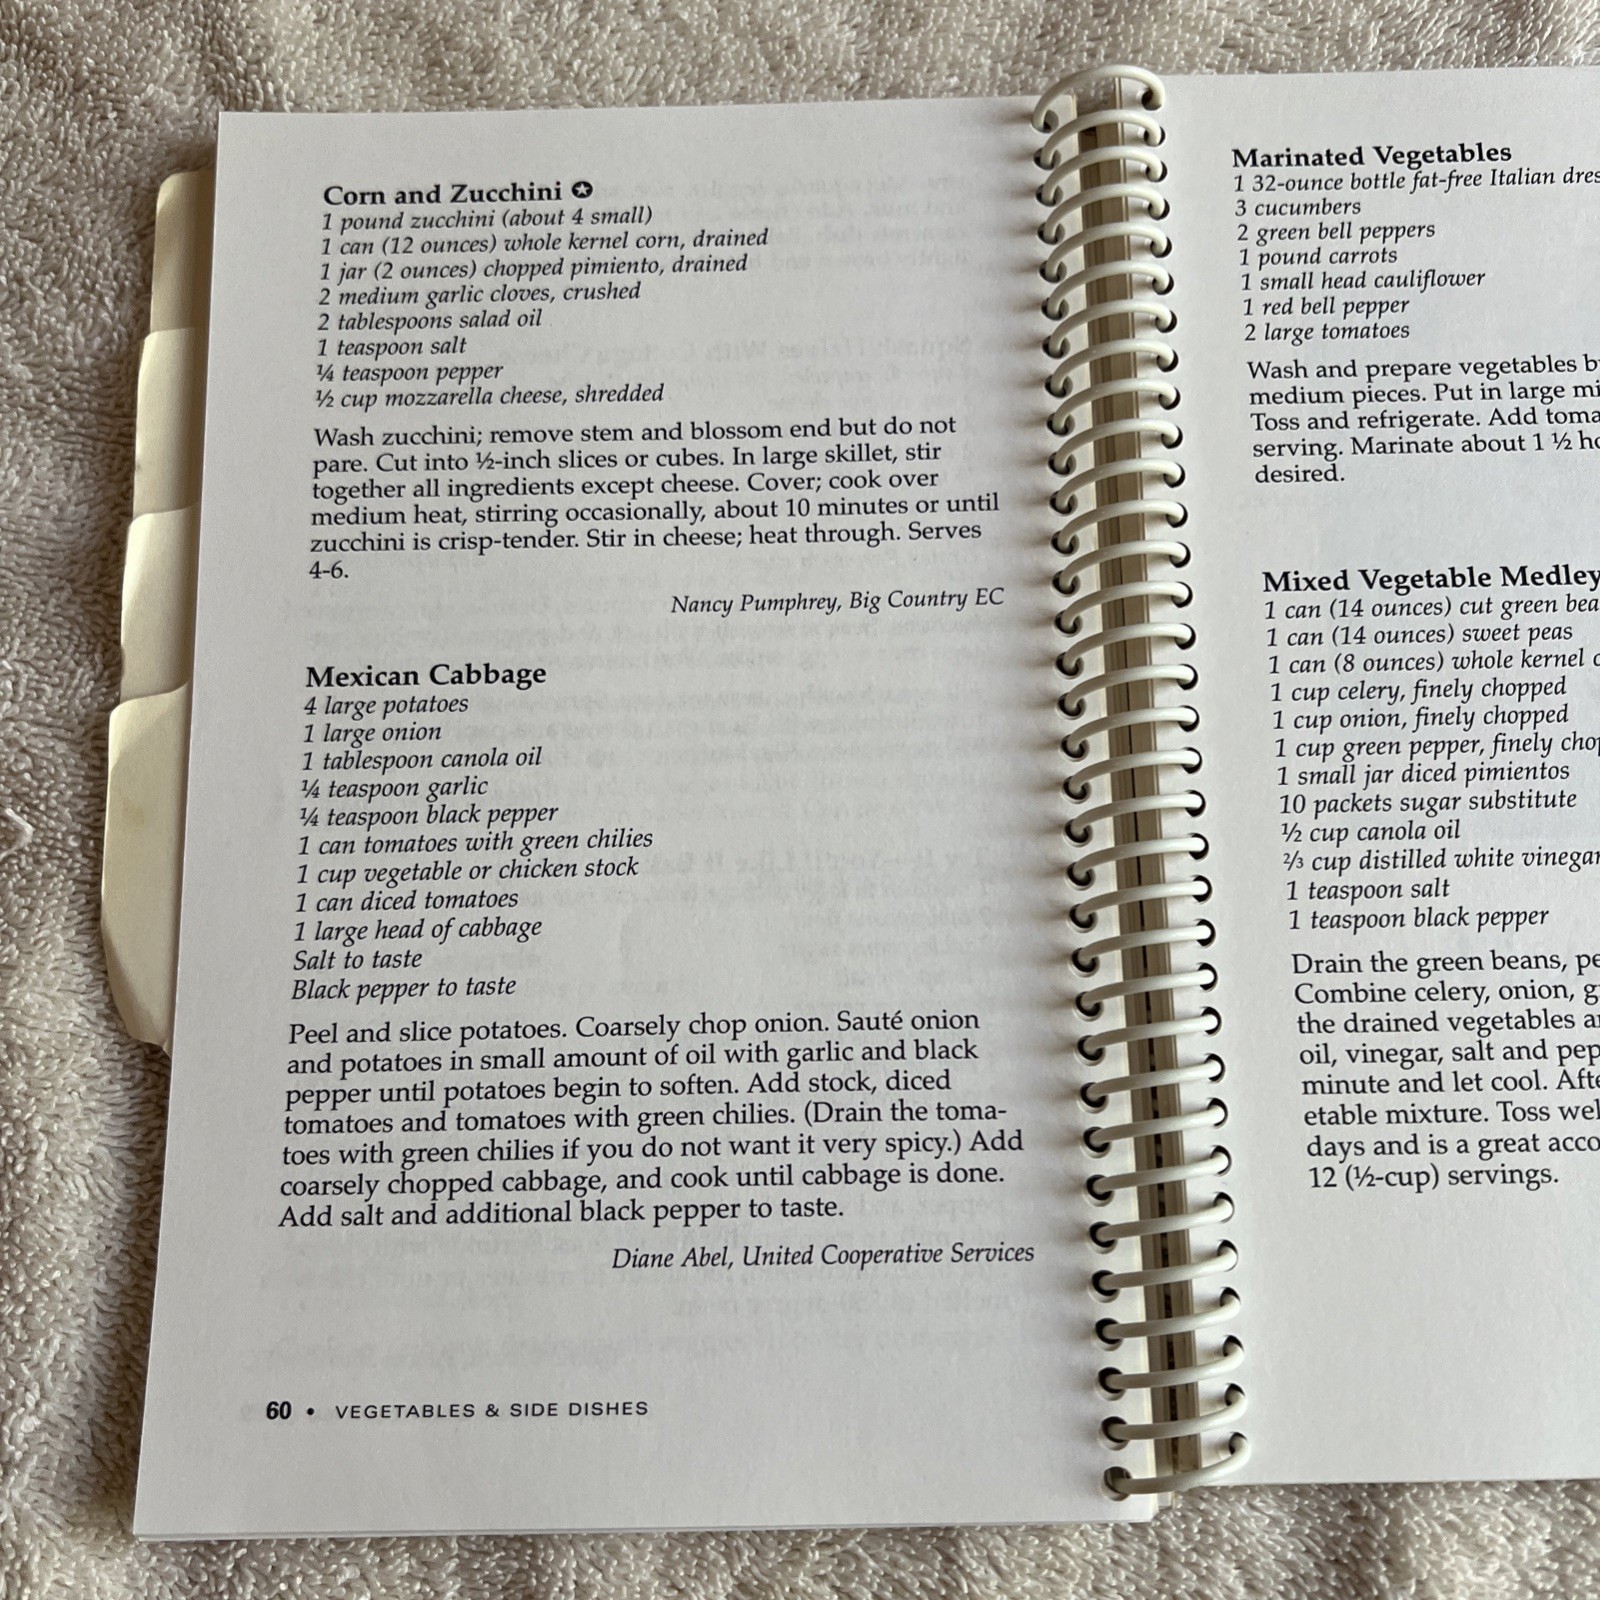 Corn and Zucchini ✪
1 pound zucchini (about 4 small)
1 can (12 ounces) whole kernel corn, drained
1 jar (2 ounces) chopped pimiento, drained
2 medium garlic cloves, crushed
2 tablespoons salad oil
1 teaspoon salt
¼ teaspoon pepper
½ cup mozzarella cheese, shredded
Wash zucchini; remove stem and blossom end but do not
pare. Cut into ½-inch slices or cubes. In large skillet, stir
together all ingredients except cheese. Cover; cook over
medium heat, stirring occasionally, about 10 minutes or until
zucchini is crisp-tender. Stir in cheese; heat through. Serves
4-6.
Nancy Pumphrey, Big Country EC
Mexican Cabbage
4 large potatoes
1 large onion
1 tablespoon canola oil
¼ teaspoon garlic
¼ teaspoon black pepper
1 can tomatoes with green chilies
1 cup vegetable or chicken stock
1 can diced tomatoes
1 large head of cabbage
Salt to taste
Black pepper to taste
Peel and slice potatoes. Coarsely chop onion. Sauté onion
and potatoes in small amount of oil with garlic and black
pepper until potatoes begin to soften. Add stock, diced
tomatoes and tomatoes with green chilies. (Drain the toma-
toes with green chilies if you do not want it very spicy.) Add
coarsely chopped cabbage, and cook until cabbage is done.
Add salt and additional black pepper to taste.
Diane Abel, United Cooperative Services
60 • VEGETABLES & SIDE DISHES
Marinated Vegetables
1 32-ounce bottle fat-free Italian
3 cucumbers
2 green bell peppers
1 pound carrots
1 small head cauliflower
1 red bell pepper
2 large tomatoes
Wash and prepare vegetables
medium pieces. Put in large
Toss and refrigerate. Add
serving. Marinate about 1 ½
desired.
Mixed Vegetable Medley
1 can (14 ounces) cut green
1 can (14 ounces) sweet peas
1 can (8 ounces) whole kernel
1 cup celery, finely chopped
1 cup onion, finely chopped
1 cup green pepper, finely
1 small jar diced pimientos
10 packets sugar substitute
½ cup canola oil
⅔ cup distilled white vinegar
1 teaspoon salt
1 teaspoon black pepper
Drain the green beans,
Combine celery, onion,
the drained vegetables
oil, vinegar, salt and
minute and let cool.
etable mixture. Toss
days and is a great
12 (½-cup) servings.